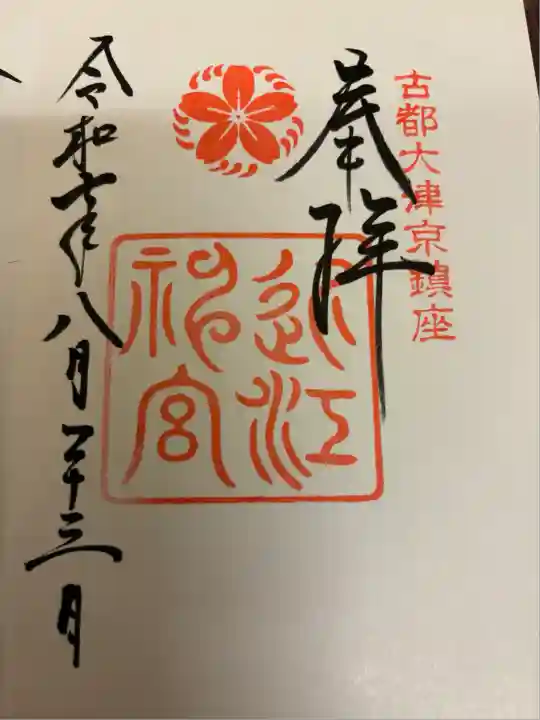 古都大津京鎮座
奉拝
近江
神宮
令和六年八月二十三日